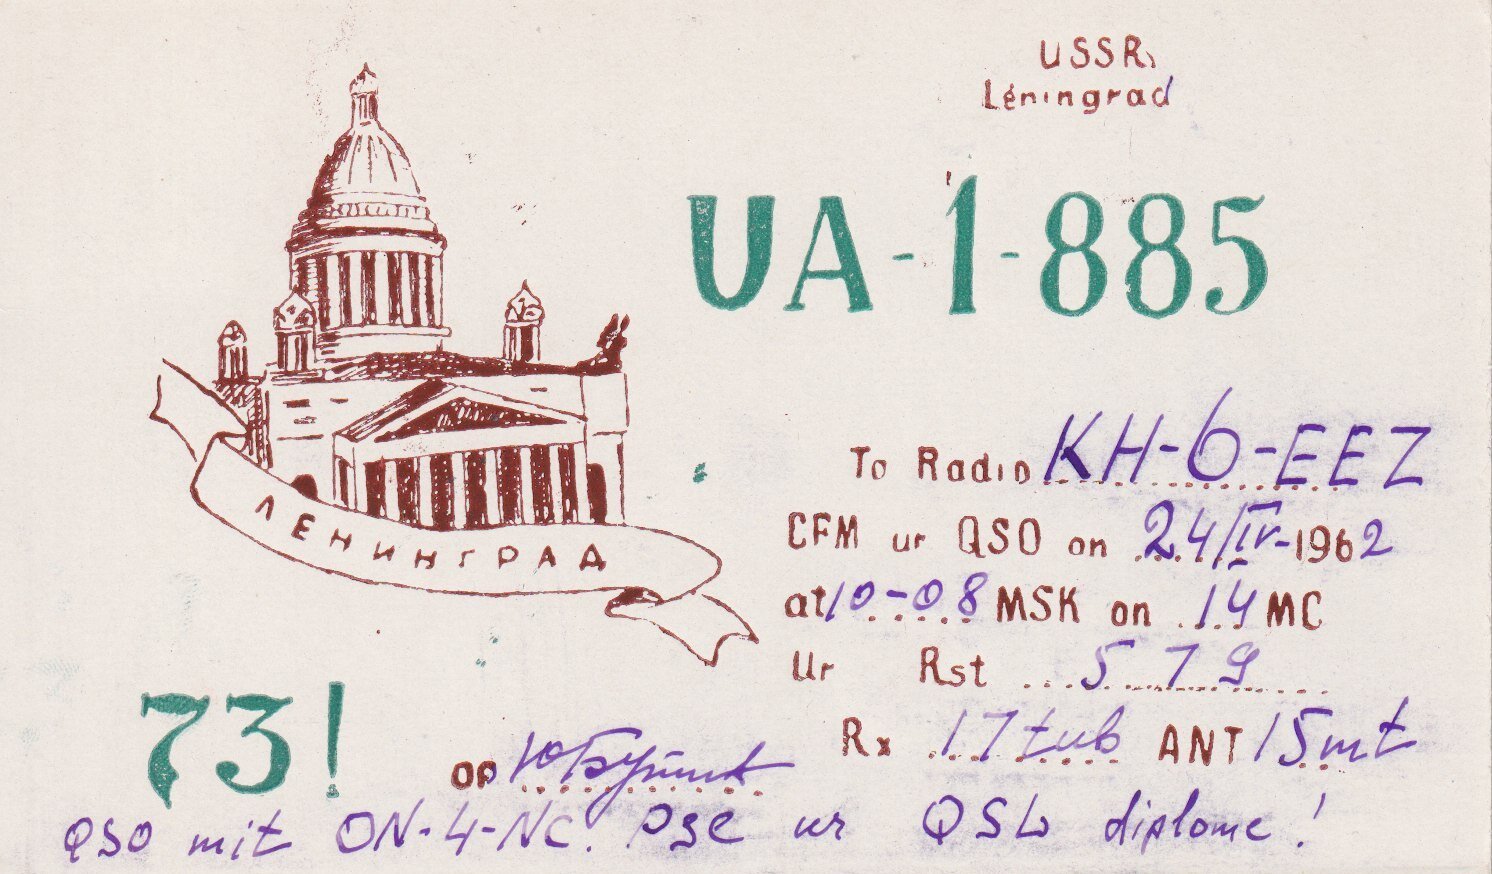 USSR,
Leningrad
UA-1-885
ЛЕНИНГРАД
To Radio KH-6-EEZ
CFM ur QSO on 24/IV-1962
at 10-08 MSK on 14 MC
Ur Rst 579
Rx 17 tub ANT 15 mt
73!
op
QSO mit ON-4-NC. Pse ur QSL diplome!